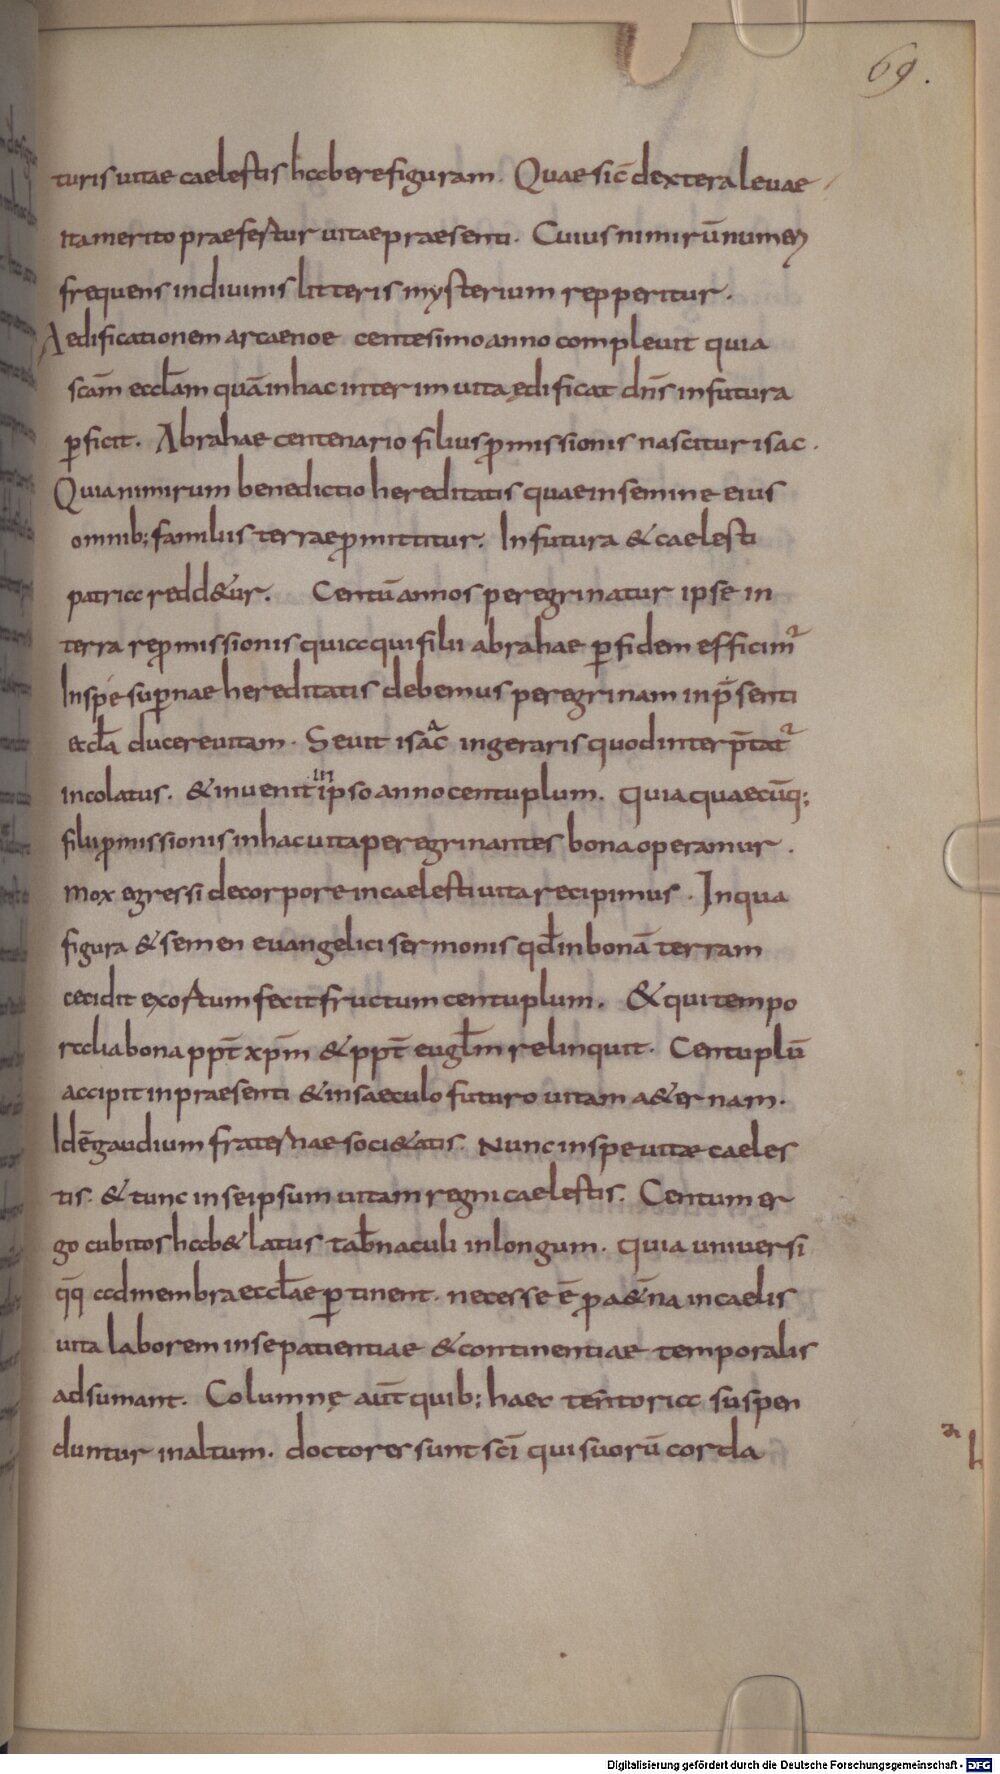 69.
turis uitae caelestis habere figuram. Quae sic̄ dextera leuae
ita merito praefertur uitae praesenti. Cuius nimirū numeri
frequens in diuinis litteris mysterium repperitur.
Aedificationem arcae noe centesimo anno compleuit quia
scām ecclam̄ quā in hac interim uita ędificat dn̄s in futura
ꝑficit. Abrahae centenario filius ꝓmissionis nascitur isac.
Quia nimirum benedictio hereditatis quae in semine eius
omnib; familiis terrae ꝓmittitur. In futura & caelesti
patria redd&ur. Centū annos peregrinatur ipse in
terra reꝓmissionis quia qui filii abrahae ꝑ fidem efficim̄
In spe suꝑnae hereditatis debemus peregrinam in p̄senti
eccla̅ ducere uitam. Seuit isaac in geraris quod interp̄tat̄
incolatus. & inuenit in ipso anno centuplum. quia quaecūq;
filii ꝓmissionis in hac uita peregrinantes bona operamur.
mox egressi de corpore in caelesti uita recipimus. In qua
figura & semen euangelici sermonis qd̄ in bonā terram
cecidit exortum fecit fructum centuplum. & qui tempo
ralia bona ppt̄ xp̄m & ppt̄ euglm̄ relinquit. Centuplū
accipit in praesenti & in saeculo futuro uitam a&ernam.
Id ē gaudium fraternae soci&atis. Nunc in spe uitæ caeles
tis. & tunc in se ipsum uitam regni caelestis. Centum er
go cubitos hab& latus tab̄naculi in longum. quia uniuersi
q̄q̄ ad membra eccl̄ae ꝑtinent. necesse ē ꝓ a&n̄a in caelis
uita laborem in se patientiae & continentiae temporalis
adsumant. Columnę aut̄ quib; haec tentoria suspen
duntur in altum. doctores sunt sc̄i qui suorū corda
Digitalisierung gefördert durch die Deutsche Forschungsgemeinschaft - DFG